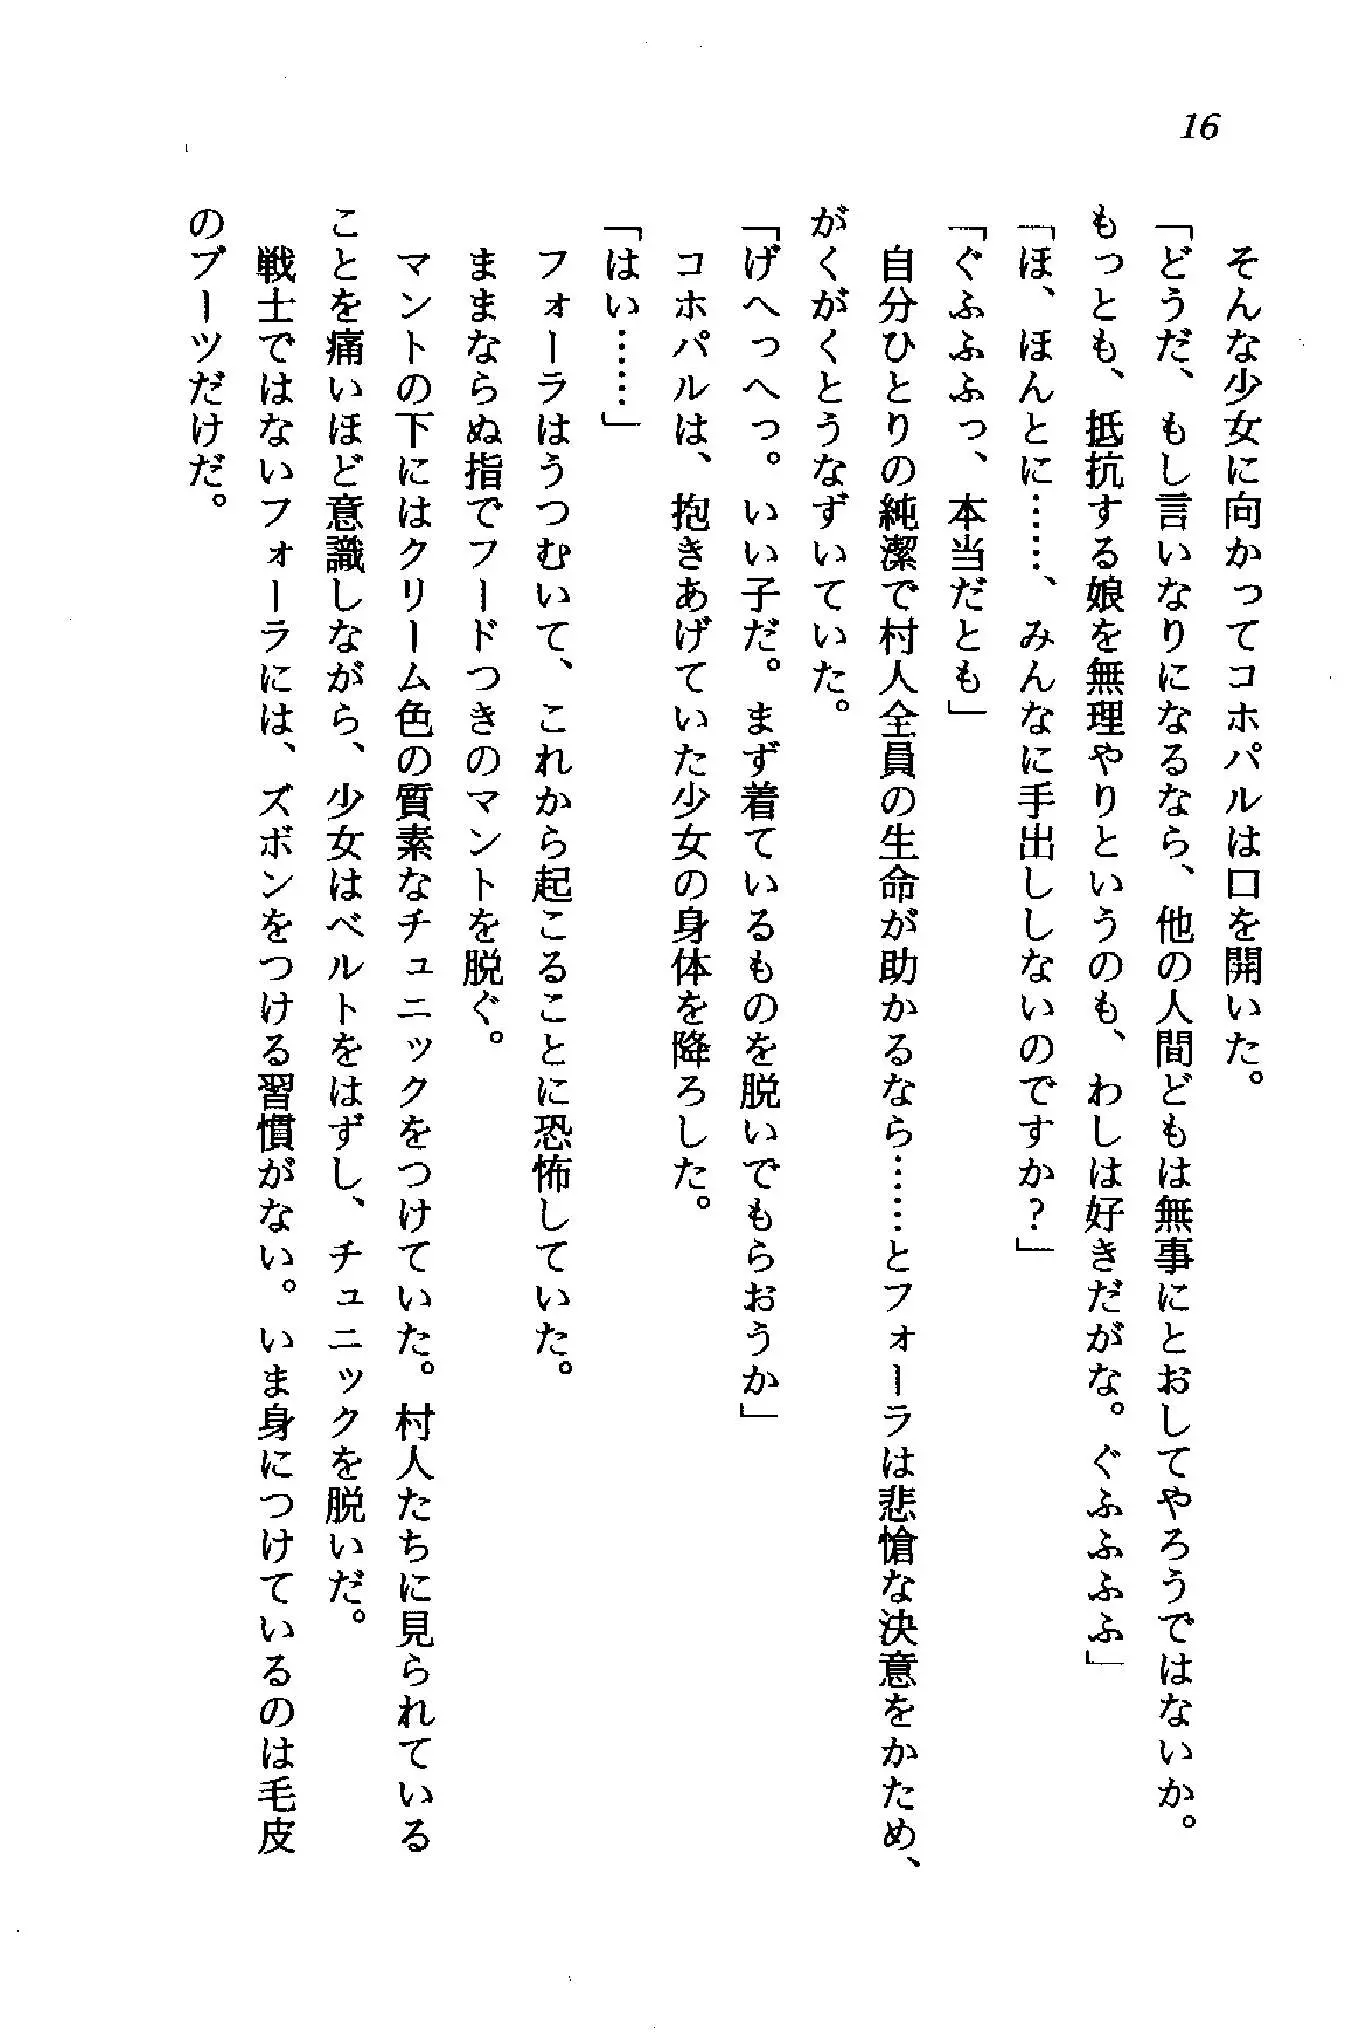 16
そんな少女に向かってコホパルは口を開いた。
「どうだ、もし言いなりになるなら、他の人間どもは無事にとおしてやろうではないか。
もっとも、抵抗する娘を無理やりというのも、わしは好きだがな。ぐふふふふ」
「ほ、ほんとに……、みんなに手出ししないのですか？」
「ぐふふふっ、本当だとも」
自分ひとりの純潔で村人全員の生命が助かるなら……とフォーラは悲愴な決意をかため、
がくがくとうなずいていた。
「げへっへっ。いい子だ。まず着ているものを脱いでもらおうか」
コホパルは、抱きあげていた少女の身体を降ろした。
「はい……」
フォーラはうつむいて、これから起こることに恐怖していた。
ままならぬ指でフードつきのマントを脱ぐ。
マントの下にはクリーム色の質素なチュニックをつけていた。村人たちに見られている
ことを痛いほど意識しながら、少女はベルトをはずし、チュニックを脱いだ。
戦士ではないフォーラには、ズボンをつける習慣がない。いま身につけているのは毛皮
のブーツだけだ。